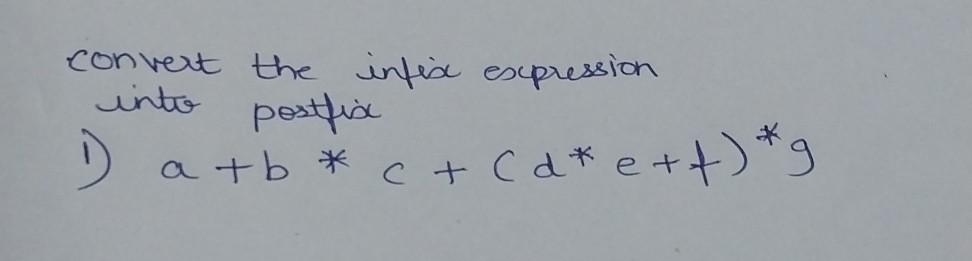 convert the infix expression
into postfix
1) a + b * c + ( d * e + f ) * g